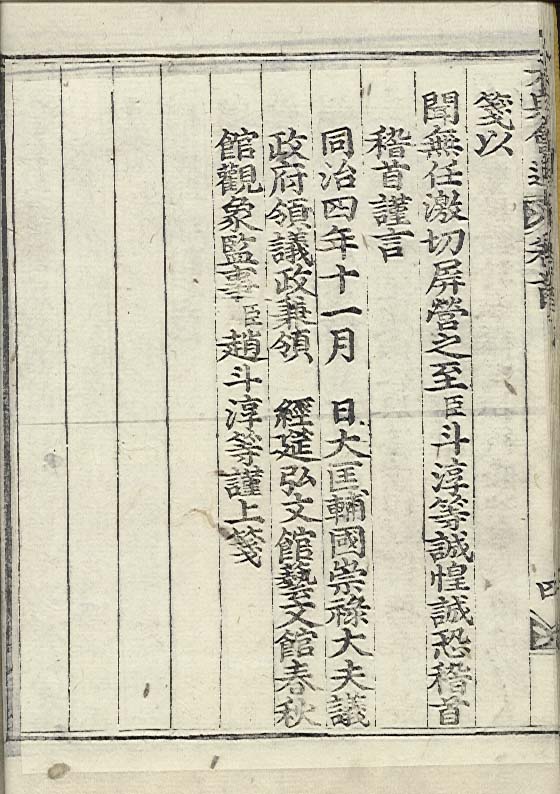 箋以
聞無任激切屏營之至臣斗淳等誠惶誠恐稽首
稽首謹言
同治四年十一月 日大匡輔國崇祿大夫議
政府領議政兼領 經筵弘文館藝文館春秋
館觀象監事臣趙斗淳等謹上箋